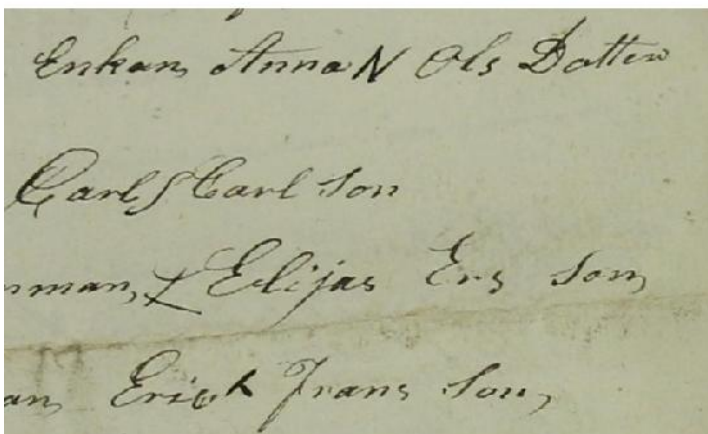 Enkan Anna N Ols Dotter
Carl S Carl Son
Elijas Ers Son
Erick Frans Son,